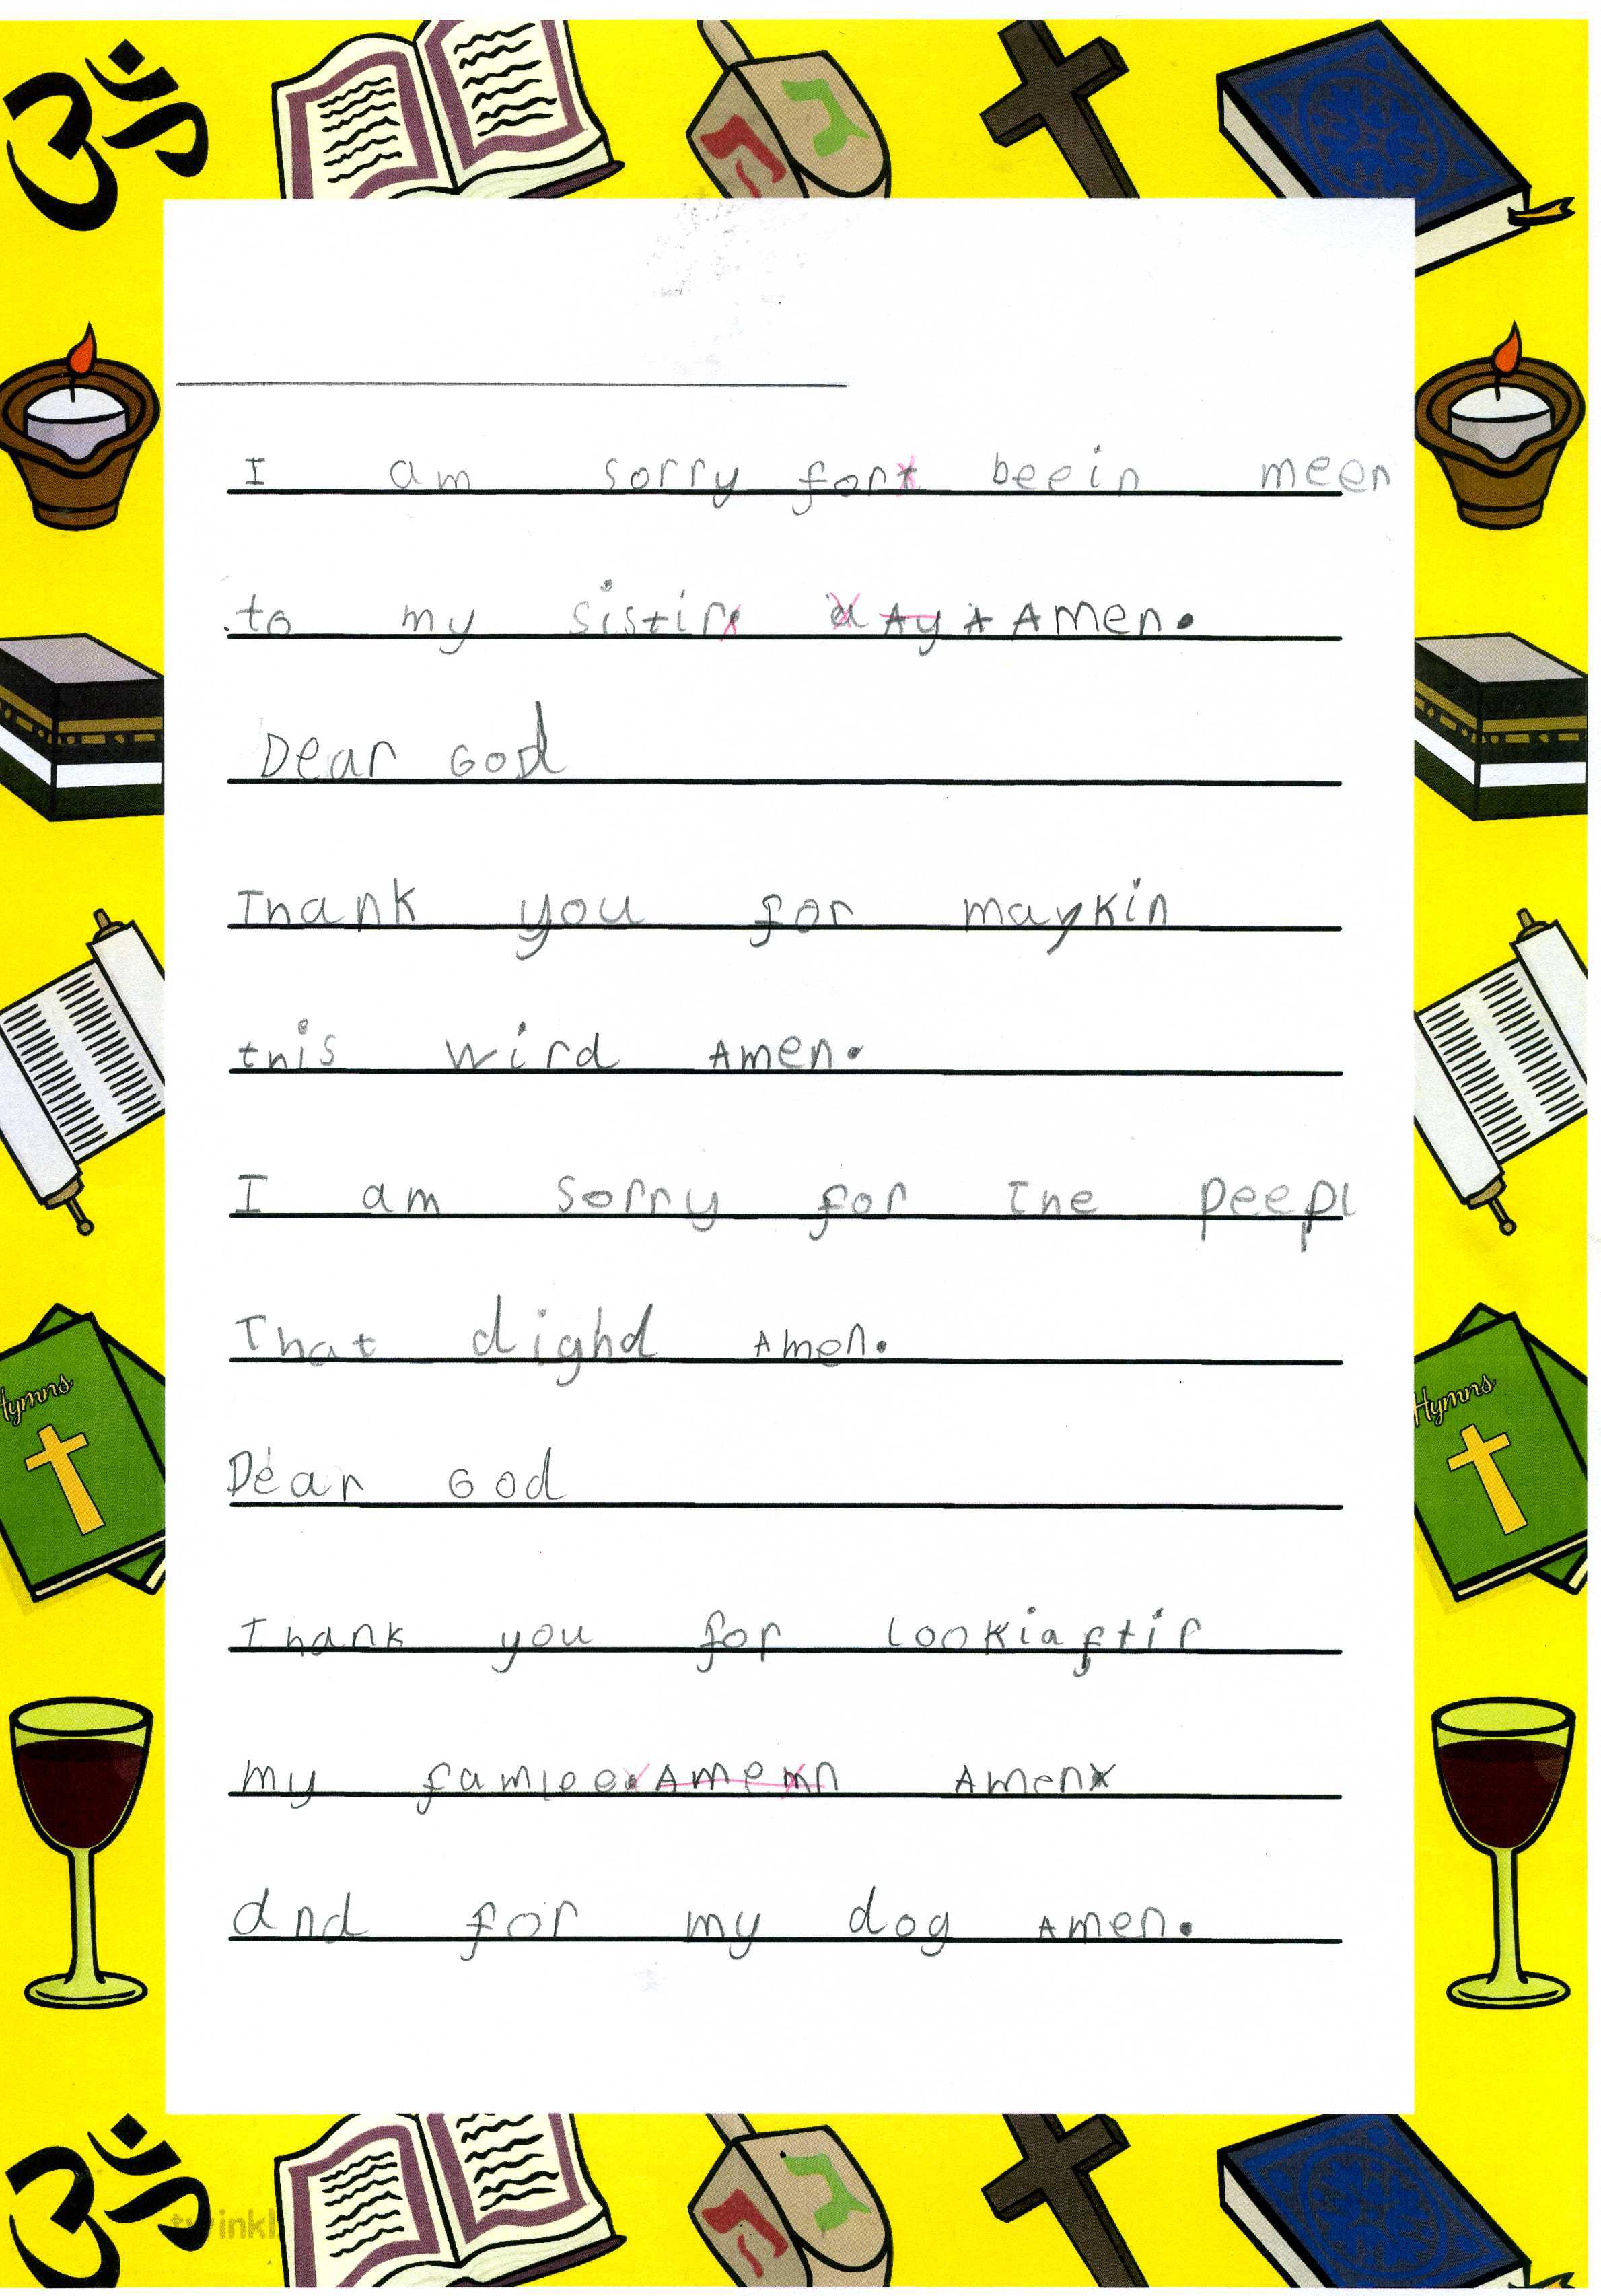 I am sorry for beein meen
to my sistir A Amen.
Dear God
Thank you for maykin
this wird Amen.
I am sorry for The peepl
That dighd Amen.
Dear God
Thank you for lookiaftir
my famlee Amen
and for my dog Amen.
Hymns
Hymns
twinkl